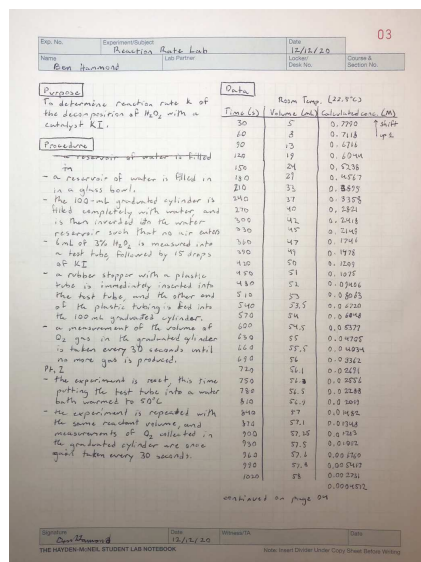 03
Exp. No. Experiment/Subject Date
Reaction Rate Lab 12/12/20
Name Lab Partner Locker/Desk No. Course & Section No.
Ben Hammond
Purpose
To determine reaction rate k of
the decomposition of H2O2 with a
catalyst KI.
Procedure
a reservoir of water is filled
in
- a reservoir of water is filled in
in a glass bowl.
- the 100-mL graduated cylinder is
filled completely with water, and
is then inverted in the water
reservoir such that no air enters
- 6mL of 3% H2O2 is measured into
a test tube, followed by 15 drops
of KI
- a rubber stopper with a plastic
tube is immediately inserted into
the test tube, and the other end
of the plastic tubing is fed into
the 100 mL graduated cylinder.
- a measurement of the volume of
O2 gas in the graduated cylinder
is taken every 30 seconds until
no more gas is produced.
Pt. 2
- the experiment is reset, this time
putting the test tube into a water
bath warmed to 50°C
- the experiment is repeated with
the same reactant volume, and
measurements of O2 collected in
the graduated cylinder are once
again taken every 30 seconds.
Data
Room Temp. (22.5°C)
Time (s) Volume (mL) Calculated conc. (M)
30 5 0.7790 ↑ shift
60 8 0.7118 up 1
90 13 0.6716
120 19 0.6044
150 24 0.5238
180 29 0.4567
210 33 0.3895
240 37 0.3358
270 40 0.2821
300 42 0.2418
330 45 0.2149
360 47 0.1746
390 49 0.1478
420 50 0.1209
450 51 0.1075
480 52 0.09406
510 53 0.08063
540 53.5 0.06720
570 54 0.06048
600 54.5 0.05377
630 55 0.04705
660 55.5 0.04034
690 56 0.0362
720 56.1 0.02691
750 56.3 0.02556
780 56.5 0.02288
810 56.9 0.02019
840 57 0.01482
870 57.1 0.01348
900 57.25 0.01213
930 57.5 0.01012
960 57.6
990 57.8 0.005417
1020 58 0.002731
0.0004512
continued on page 04
Signature Date Witness/TA Date
Ben Hammond 12/12/20
THE HAYDEN-McNEIL STUDENT LAB NOTEBOOK Note: Insert Divider Under Copy Sheet Before Writing